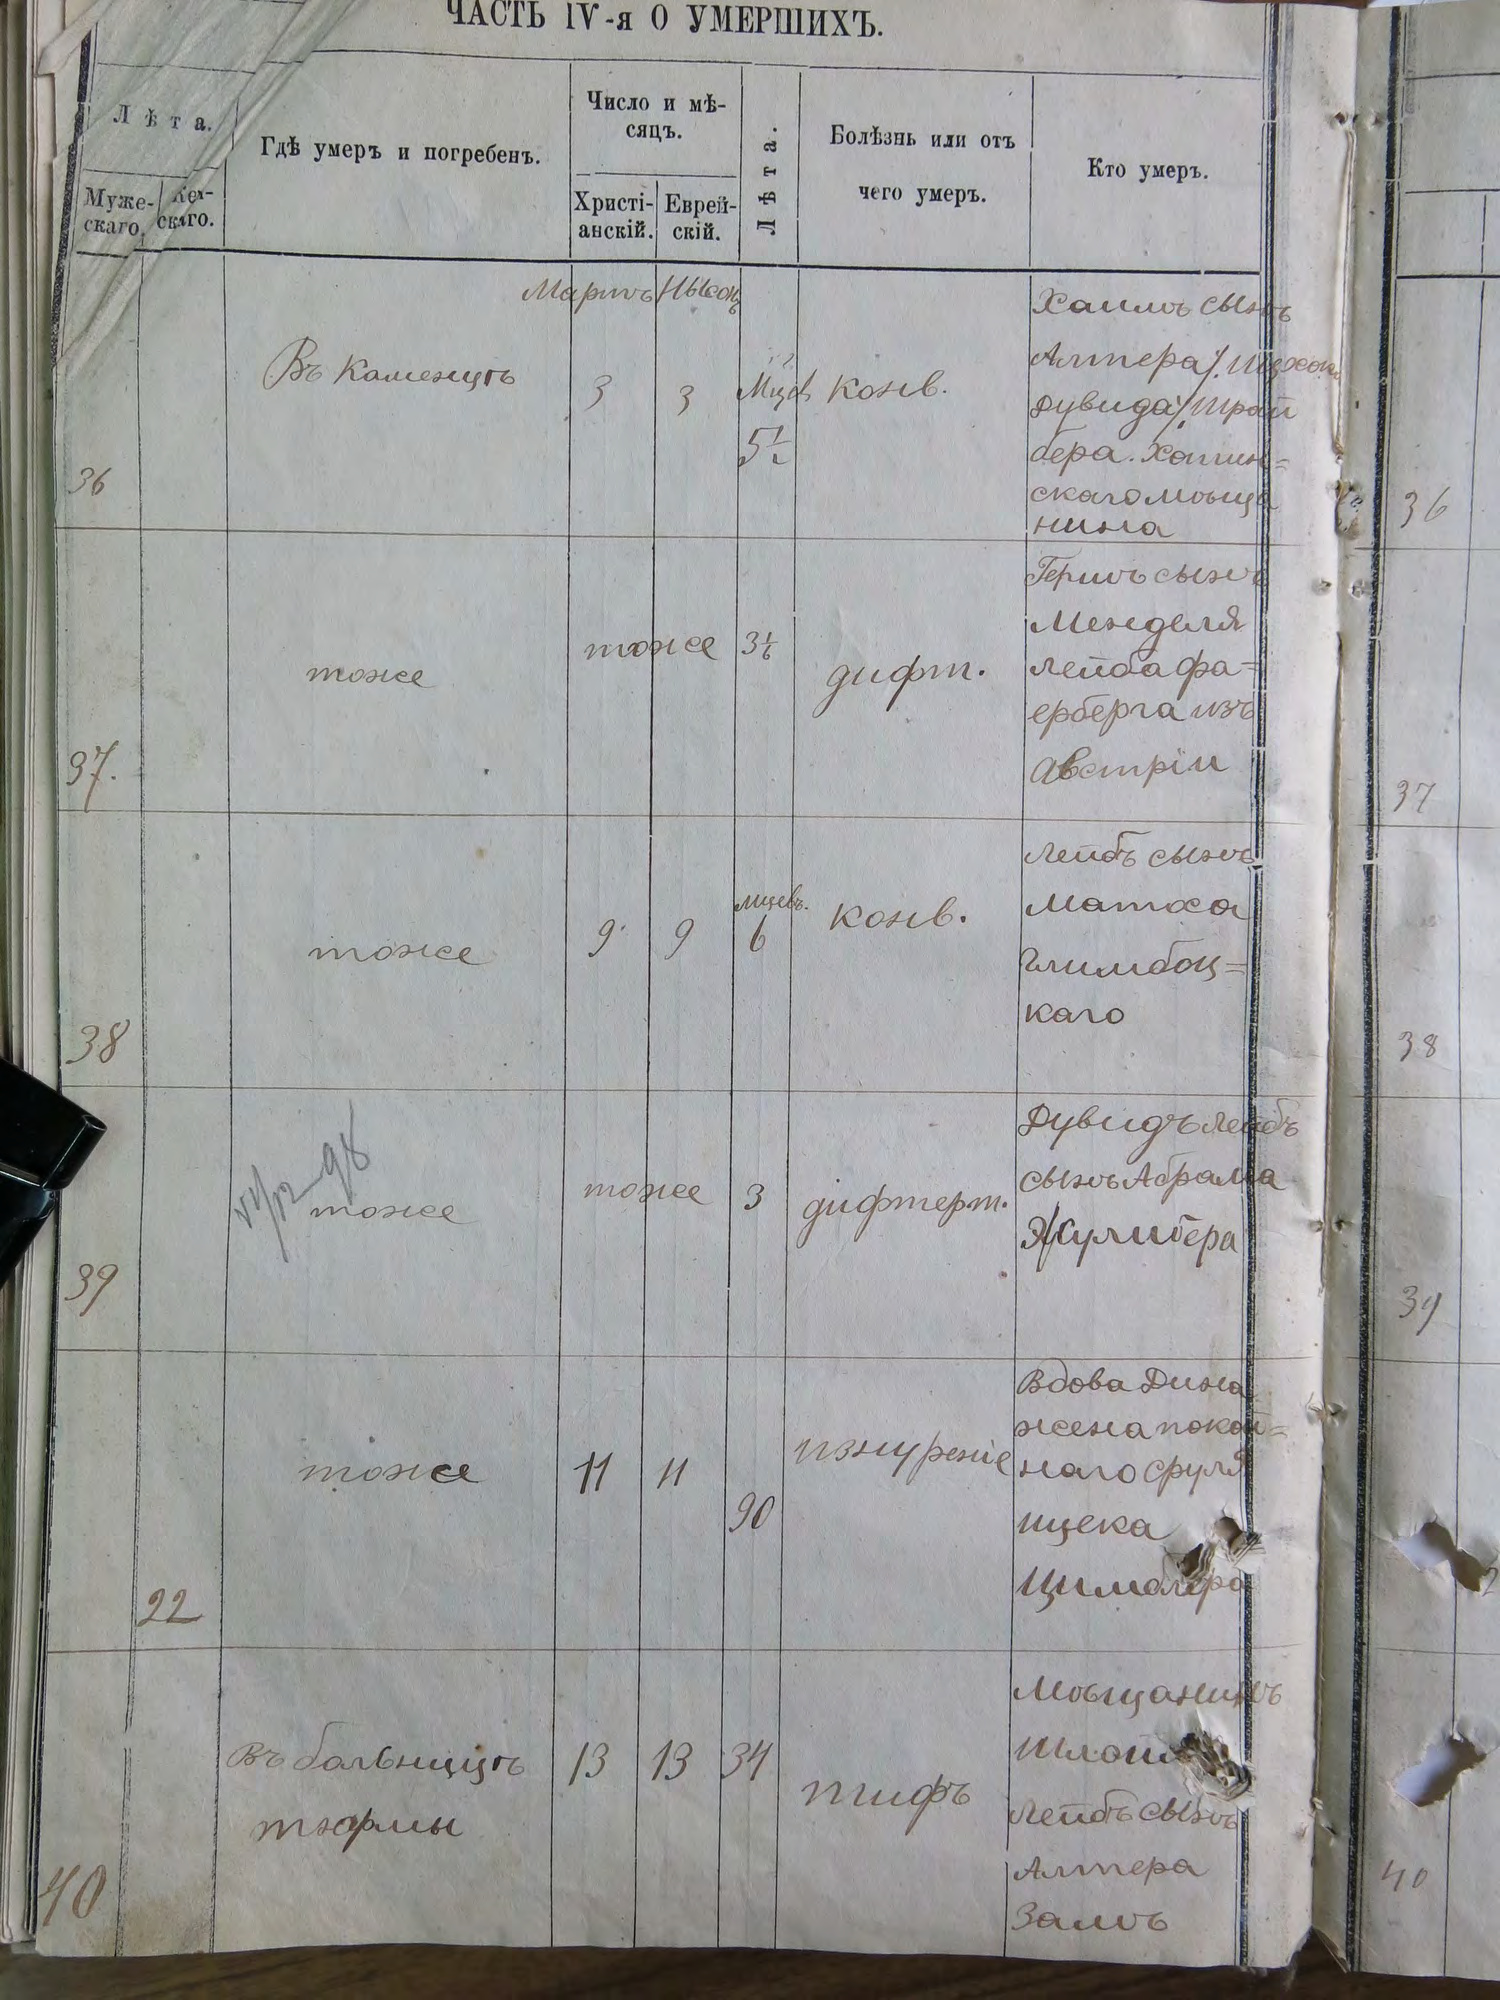 ЧАСТЬ IV-я О УМЕРШИХЪ.
Лѣта.
Муже-
скаго.
Жен-
скаго.
Гдѣ умеръ и погребенъ.
Число и мѣ-
сяцъ.
Христі-
анскій.
Еврей-
скій.
Лѣта.
Болѣзнь или отъ
чего умеръ.
Кто умеръ.
36
Въ Каменцѣ
Мартъ
3
Нысонъ
3
Мцев
5½
конв.
Хаимъ сынъ
Алтера
Дувида/Шрай
бера. Хотин=
скаго мѣща
нина
36
37.
тоже
тоже
3½
дифт.
Гершъ сынъ
Менделя
Лейба фа=
ерберга изъ
Австріи
37
38
тоже
9
9
мцевъ.
6
конв.
Лейбъ сынъ
Матхса
Глимбоц=
каго
38
39
тоже
тоже
3
дифтерт.
Дувидъ Лейбъ
сынъ Абрама
Жулибера
39
22
тоже
11
11
90
изнуреніе
Вдова Дина
жена покой=
наго Сруля
Ицека
Цимолера
13
40
Въ больницѣ
тюрмы
13
34
тифъ
Мѣщанинъ
Лейбъ сынъ
Алтера
Залмъ
40